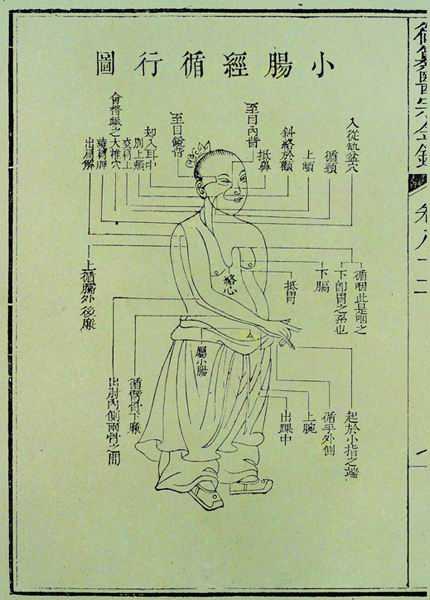 御纂醫宗金鑑
卷八十二
小腸經循行圖
入從缺盆穴
循頸
上頰
斜絡於顴
抵鼻
至目內眥
至目銳眥
却入耳中
別上頰
交肩上
會督脈之
大椎穴
繞肩胛
出肩解
循咽此是咽之
下卽胃之系也
下膈
抵胃
絡心
屬小腸
上循臑外後廉
起於小指之端
循手外側
上腕
出踝中
循臂骨下廉
出肘內側兩骨之間